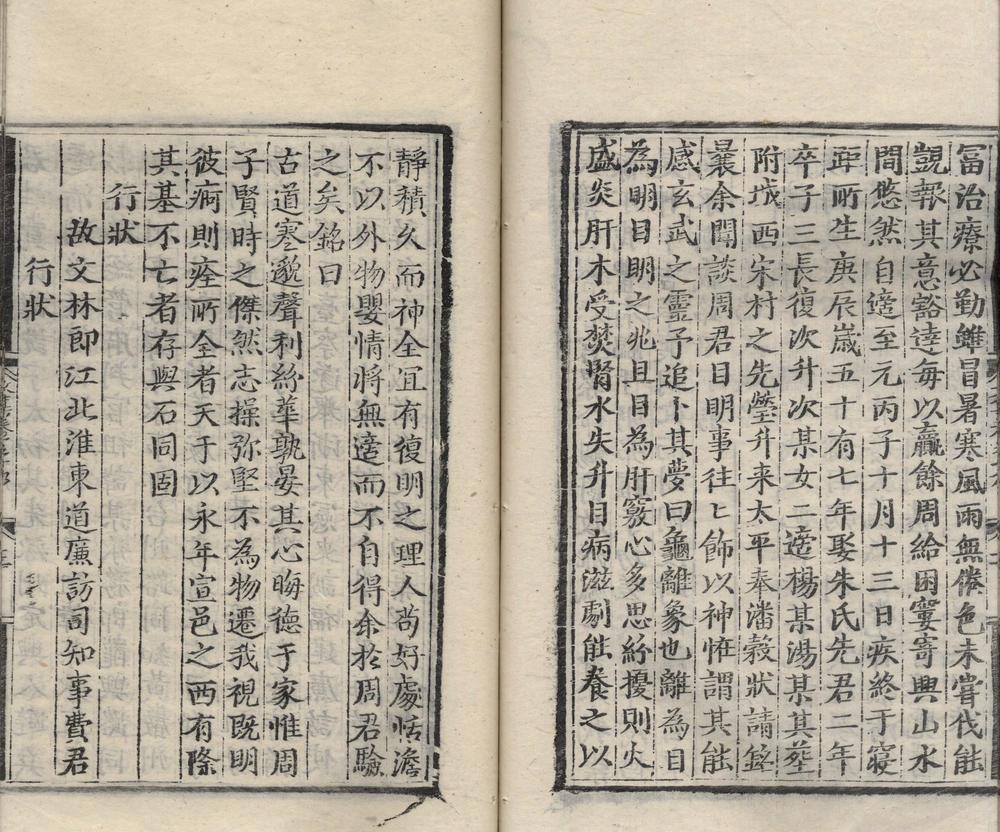 冨治療必勤雖冒暑寒風雨無倦色未嘗伐能
覬報其意豁逹毎以贏餘周給困窶寄興山水
間悠然自適至元丙子十月十三日疾終于寝
距所生庚辰歳五十有七年娶朱氏先君二年
卒子三長復次升次某女二適楊某湯某其塟
附城西宋村之先塋升来太平奉潘糓狀請銘
曩余聞談周君目明事往〻飾以神恠謂其能
感玄武之靈予追卜其夢曰龜離象也離為目
為明目明之兆且目為肝竅心多思紛擾則火
盛炎肝木受焚腎水失升目病滋劇能養之以
靜積久而神全宜有復明之理人苟好處恬澹
不以外物嬰情將無適而不自得余於周君驗
之矣銘曰
古道寒邈聲利紛華孰晏其心晦德于家惟周
子賢時之傑然志操弥堅不為物遷我視既明
彼痾則痊所全者天于以永年宣邑之西有隆
其基不亡者存與石同固
行狀
故文林郎江北淮東道廉訪司知事費君
行狀